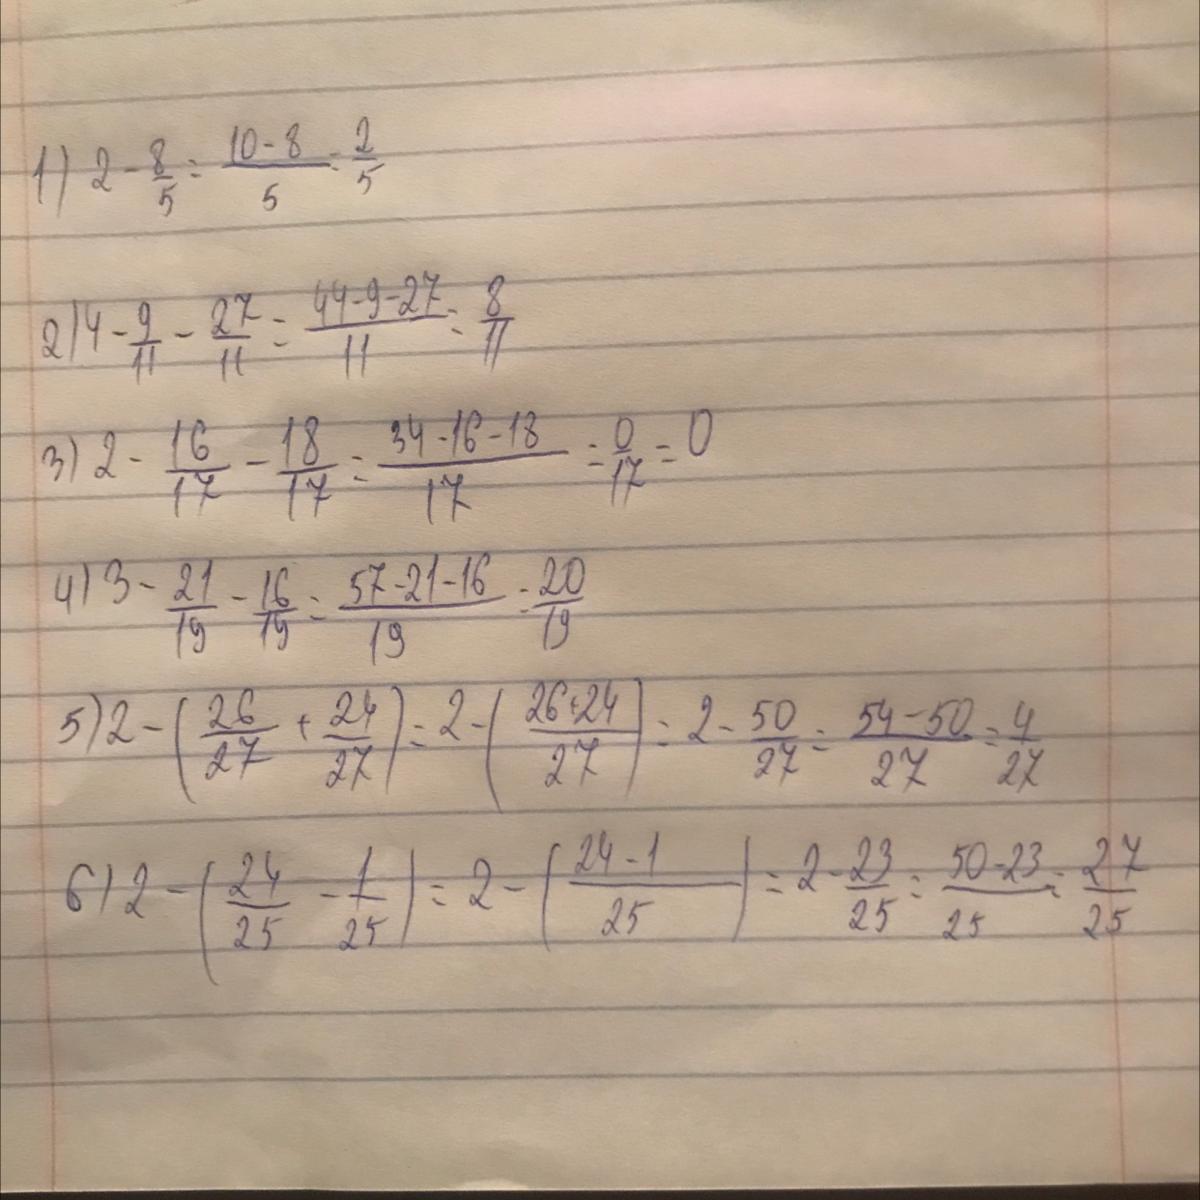 1) 2 - 8/5 = (10 - 8)/5 = 2/5
2) 4 - 9/11 - 27/11 = (44 - 9 - 27)/11 = 8/11
3) 2 - 16/17 - 18/17 = (34 - 16 - 18)/17 = 0/17 = 0
4) 3 - 21/19 - 16/19 = (57 - 21 - 16)/19 = 20/19
5) 2 - (26/27 + 24/27) = 2 - ((26 + 24)/27) = 2 - 50/27 = (54 - 50)/27 = 4/27
6) 2 - (24/25 - 1/25) = 2 - ((24 - 1)/25) = 2 - 23/25 = (50 - 23)/25 = 27/25